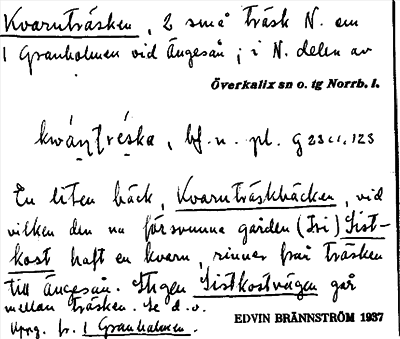 Kvarnträsken, 2 små träsk N. om
1 Granholmen vid Ängesån; i N. delen av
Överkalix sn o. tg Norrb. l.
kwáṇtrę́ska, bf. n. pl. G 23 c1, 123
En liten bäck, Kvarnträskbäcken, vid
vilken den nu försvunna gården (Tri) Sist-
kost haft en kvarn, rinner från träsken
till Ängesån. Stigen Sistkostvägen går
mellan träsken. Se d. o.
Uppg. fr. 1 Granholmen.
EDVIN BRÄNNSTRÖM 1937